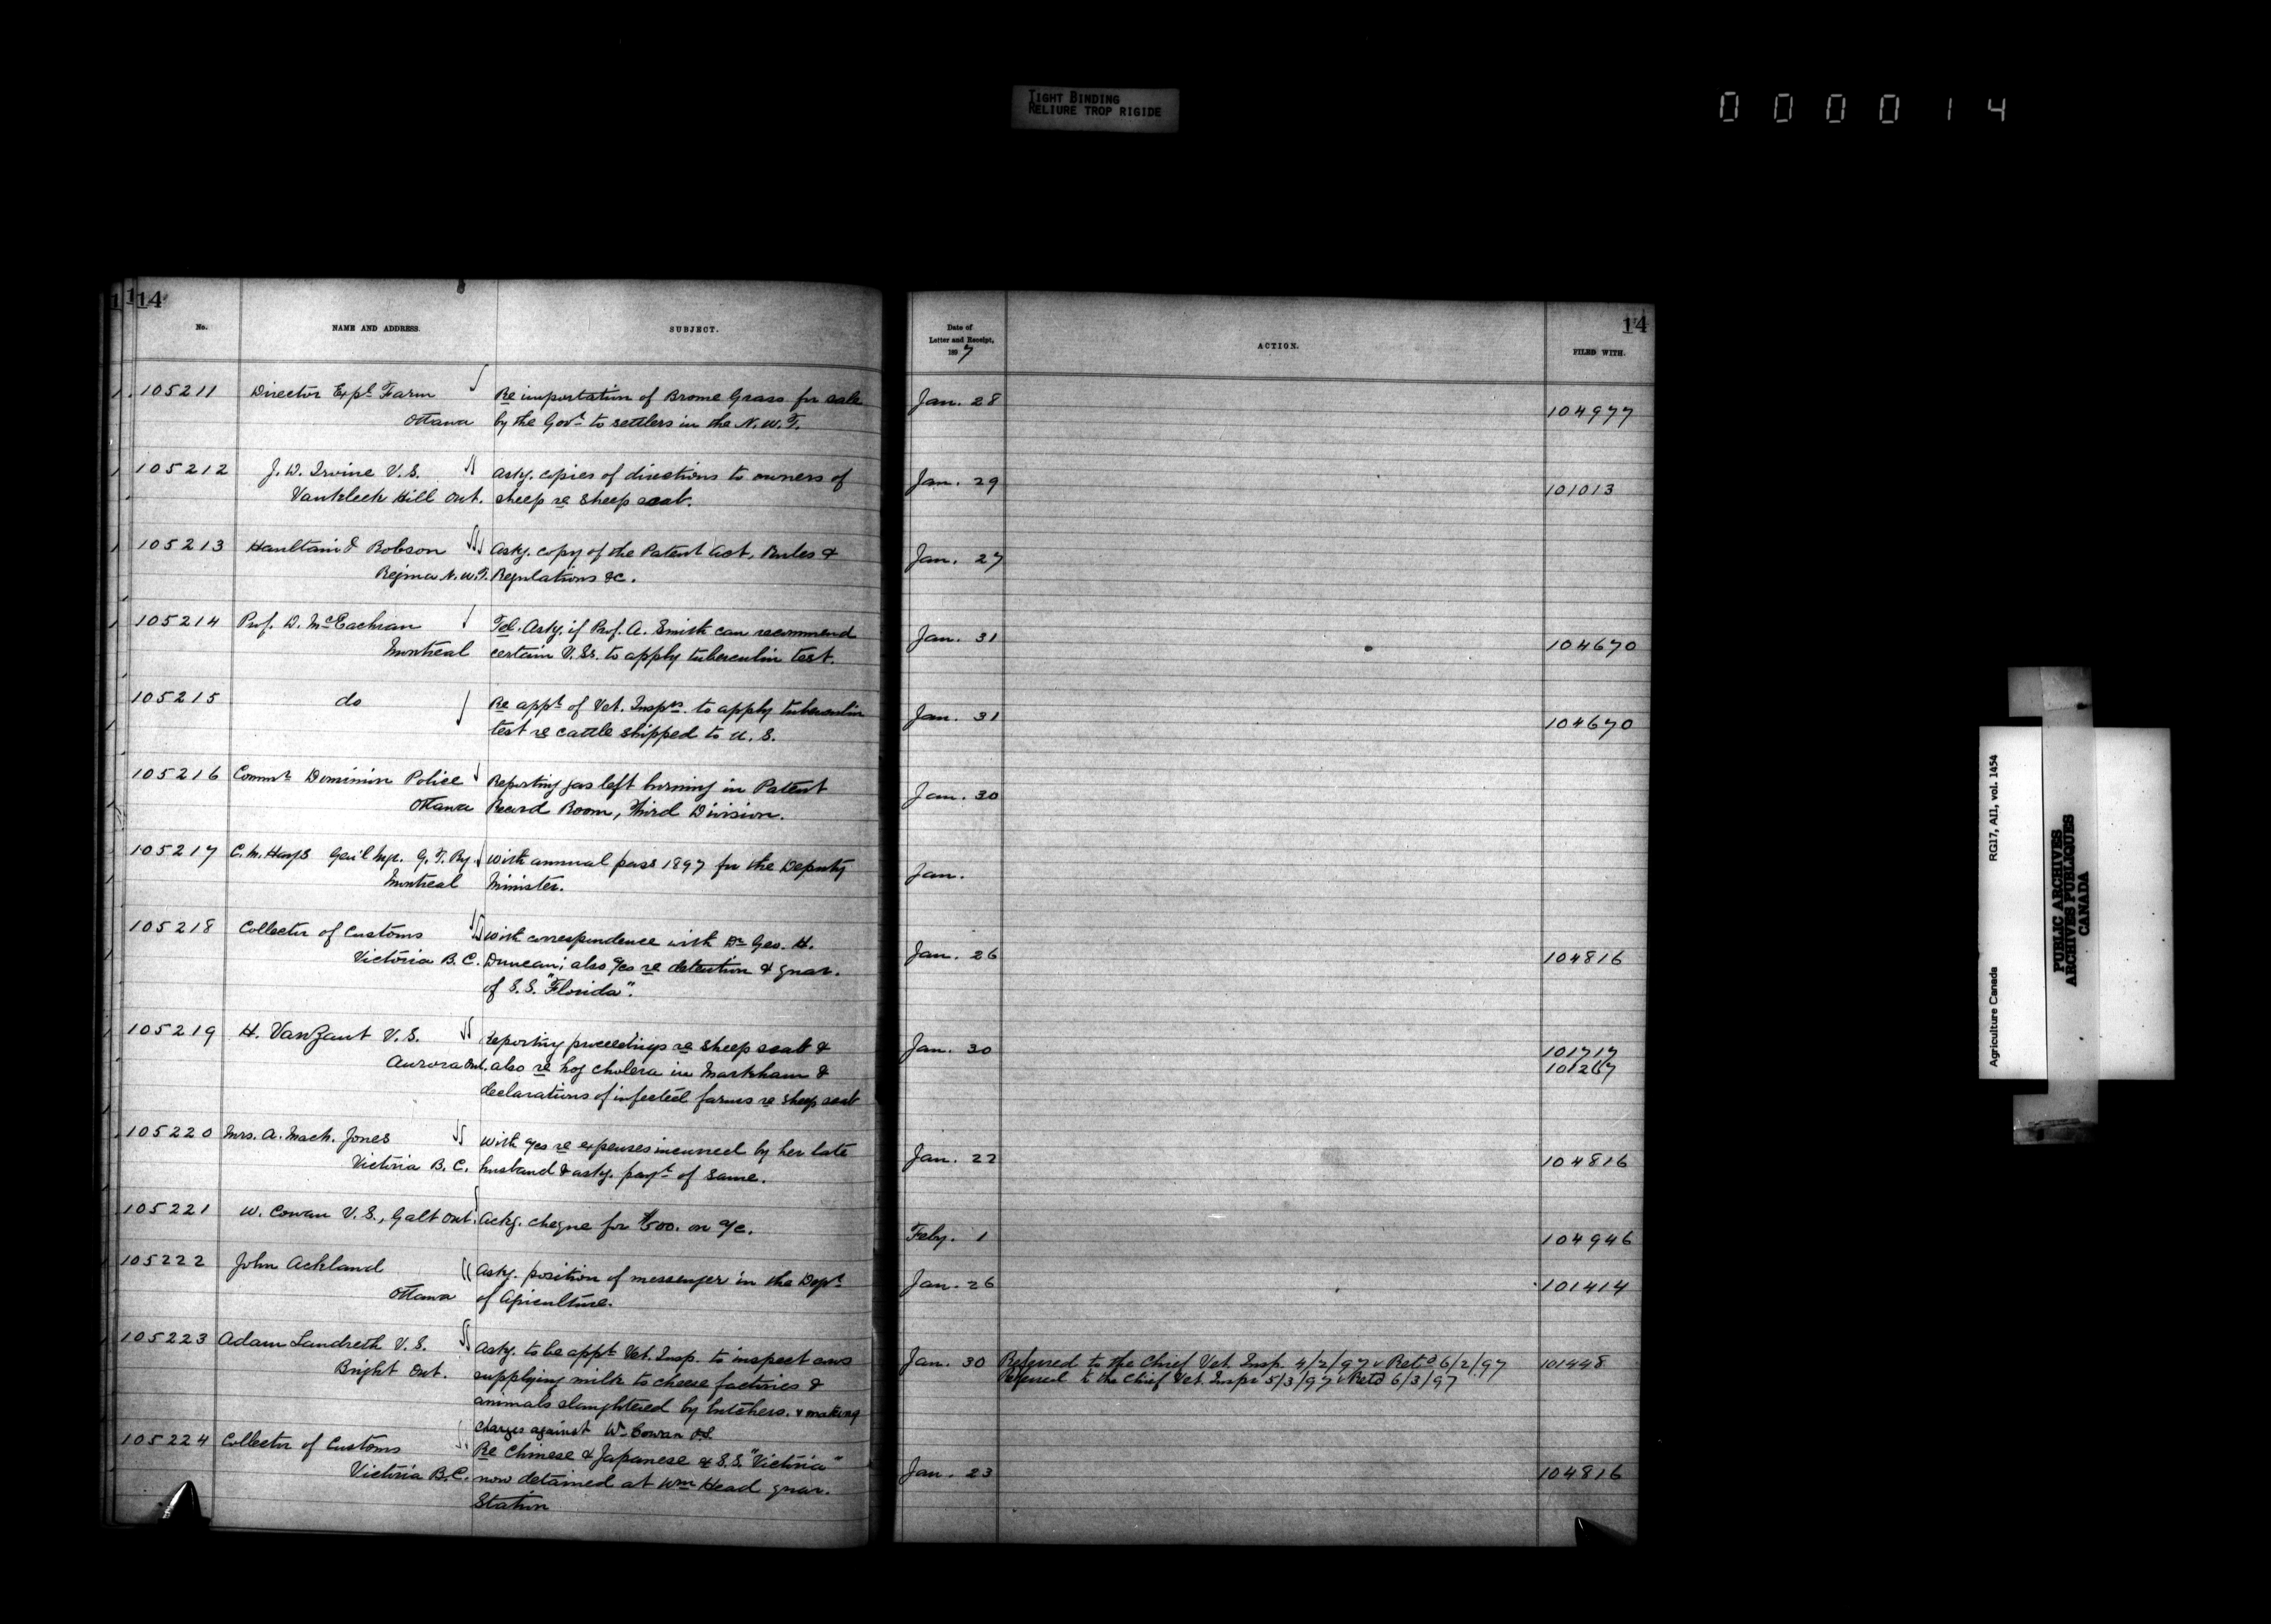 TIGHT BINDING
RELIURE TROP RIGIDE
0 0 0 0 1 4
1 1 14
No.
NAME AND ADDRESS.
SUBJECT.
105211 Director Expl Farm Re importation of Brome Grass for sale
Ottawa by the Govt to settlers in the N.W.T.
105212 J. W. Irvine V.S. Askg. copies of directions to owners of
Vankleek Hill Ont. sheep re sheep scab.
105213 Haultain & Robson Askg. copy of the Patent Act, Rules &
Regina N.W.T. Regulations &c.
105214 Prof. D. McEachran Tel. Askg. if Prof. A. Smith can recommend
Montreal certain V.Ss. to apply tuberculin test.
105215 do Re appt of Vet. Insprs. to apply tuberculin
test re cattle shipped to U.S.
105216 Commr Dominion Police Reporting gas left burning in Patent
Ottawa Record Room, Third Division.
105217 C. M. Hays Gen'l Mgr. G. T. Ry. With annual pass 1897 for the Deputy
Montreal Minister.
105218 Collector of Customs With correspondence with Dr Geo. H.
Victoria B.C. Duncan; also a/cs re detention & quar.
of S.S. "Florida".
105219 H. VanZant V.S. Reporting proceedings re sheep scab &
Aurora Ont. also re hog cholera in Markham &
declarations of infected farms re sheep scab
105220 Mrs. A. Mack. Jones With a/cs re expenses incurred by her late
Victoria B.C. husband & askg. payt of same.
105221 W. Cowan V.S., Galt Ont. Ackg. cheque for on a/c.
105222 John Ackland Askg. position of messenger in the Dept
Ottawa of Agriculture.
105223 Adam Landreth V.S. Askg. to be appt Vet. Insp. to inspect cows
Bright Ont. supplying milk to cheese factories &
animals slaughtered by butchers. & making
charges against Wm Cowan V.S.
105224 Collector of Customs Re Chinese & Japanese S.S. "Victoria"
Victoria B.C. now detained at Wm Head quar.
Station
14
Date of
Letter and Receipt,
1897
ACTION.
FILED WITH.
Jan. 28 104977
Jan. 29 101013
Jan. 27
Jan. 31 104670
Jan. 31 104670
Jan. 30
Jan.
Jan. 26 104816
Jan. 30 101717
101267
Jan. 22 104816
Feby. 1 104946
Jan. 26 101414
Jan. 30 Referred to the Chief Vet. Insp. 4/2/97 & Retd 6/2/97 101448
Referred to the Chief Vet. Inspr 5/3/97 & Retd 6/3/97
Jan. 23 104816
Agriculture Canada RG17, AII, vol. 1454
PUBLIC ARCHIVES
ARCHIVES PUBLIQUES
CANADA